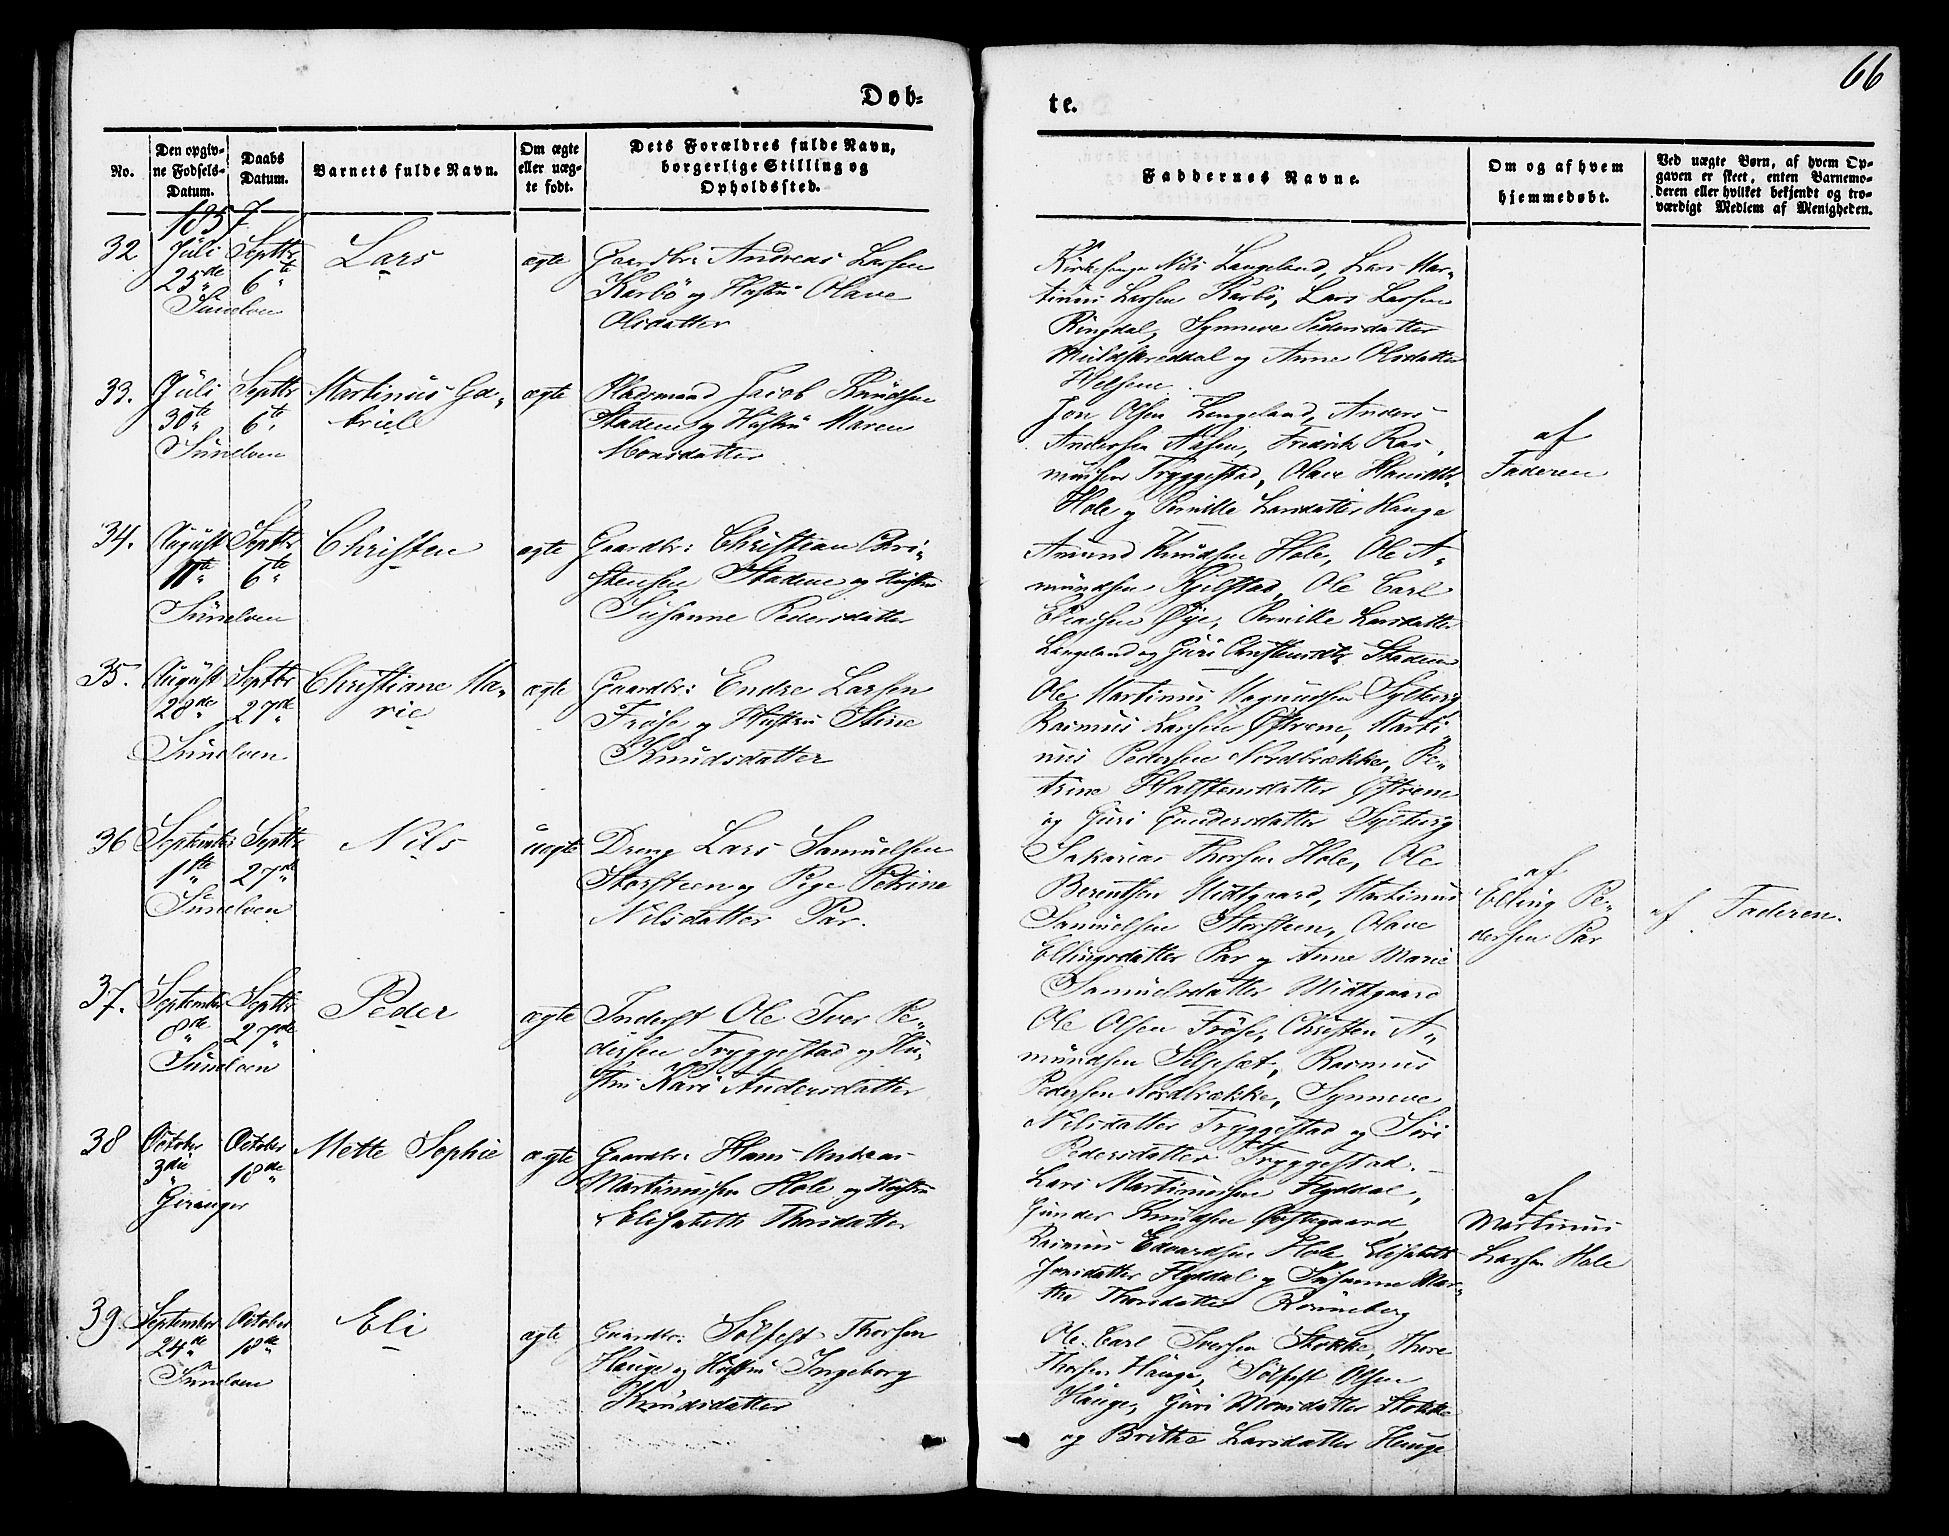 66
Døb-
te.
No.
Den opgiv-
ne Fødsels-
Datum.
Daabs
Datum.
Barnets fulde Navn.
Om ægte
eller uæg-
te født.
Dets Forældres fulde Navn,
borgerlige Stilling og
Opholdssted.
Faddernes Navne.
Om og af hvem
hjemmedøbt.
Ved uægte Børn, af hvem Op-
gaven er skeet, enten Barnemo-
deren eller hvilket bekjendt og tro-
værdigt Medlem af Menigheden.
1857
32
Juli
25de
Sunelven
Septbr
6te
Lars
ægte
Gaardbr: Andreas Larsen
Karbö og Hustru Olave
Olsdatter
Nils Langeland, Lars Mar-
tinus Larsen Karbö, Lars Larsen
Ringdal, Synneve Pedersdatter
Muldskreddal og Anne Olsdatter
Helsem
33.
Juli
30te
Sunelven
Septbr
6te
Martinus Ga-
briele
ægte
Pladsmand Jacob Knudsen
Stadem og Hustru Maren
Monsdatter
Jon Olsen Langeland, Anders
Andersen Aasen, Fredrik Ras-
musen Tryggestad, Olave
Hole og Pernille Larsdatter Hauge
af
Faderen
34.
August
11te
Sunelven
Septbr
6te
Christen
ægte
Gaardbr: Christian Chri-
stensen Stadem og Hustru
Susanne Pedersdatter
Amund Knudsen Hole, Ole A-
mundsen Kjelstad, Ole Carl
Eliassen Øye, Pernille Larsdatter
Langeland og Guri Christensdtr Stadem
35.
August
28de
Sunelven
Septbr
27de
Christiane Ma-
rie
ægte
Gaardbr: Endre Larsen
Fröse og Hustru Stine
Knudsdatter
Ole Martinus Magnusen Sylterig
Rasmus Larsen Öftrem, Marti-
nus Pedersen Nordbrække, Pe-
trine Halstensdatter Öftrem
og Guri Gundersdatter Sylterig
36
September
1ste
Sunelven
Septbr
27de
Nils
uægte
Dreng Lars Samuelsen
Storsteen og Pige Petrine
Nilsdatter Par.
Sakarias Thorsen Hole, Ole
Berentsen Midtgaard, Martinus
Samuelsen Storsteen, Olave
Ellingsdatter Par og Anne Marie
Samuelsdatter Midtgaard
af
Elling Pe-
dersen Par
af Faderen.
37.
September
8de
Sunelven
Septbr
27de
Peder
ægte
Inderst Ole Iver Pe-
dersen Tryggestad og Hu-
stru Kari Andersdatter
Ole Olsen Fröse, Christen A-
mundsen Selseset, Rasmus
Pedersen Nordbrække, Synneve
Nilsdatter Tryggestad og Siri
Pedersdatter Tryggestad.
38
October
3die
Geiranger
October
18de
Mette Sophie
ægte
Gaardbr: Hans Andreas
Martinusen Hole og Hustru
Elisabeth Thorsdatter
Lars Martinusen Flyddal,
Gunder Knudsen Østegaard
Rasmus Edvardsen Hole, Elisabeth
Jonsdatter Flyddal og Susanne Mar-
the Thorsdatter Rönneberg
af
Martinus
Larsen Hole
39
September
24de
Sunelven
October
18de
Eli
ægte
Gaardbr: Sölfest Thorsen
Hauge og Hustru Ingeborg
Knudsdatter
Ole Carl Iversen Stokke, Thore
Thorsen Hauge, Sölfest Olsen
Hauge, Guri Monsdatter Stokke
og Brithe Larsdatter Hauge